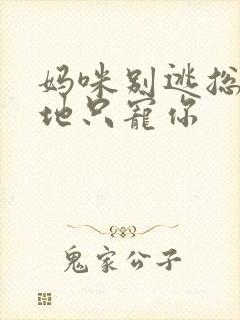 妈咪别逃总
地只宠你
鬼家公子